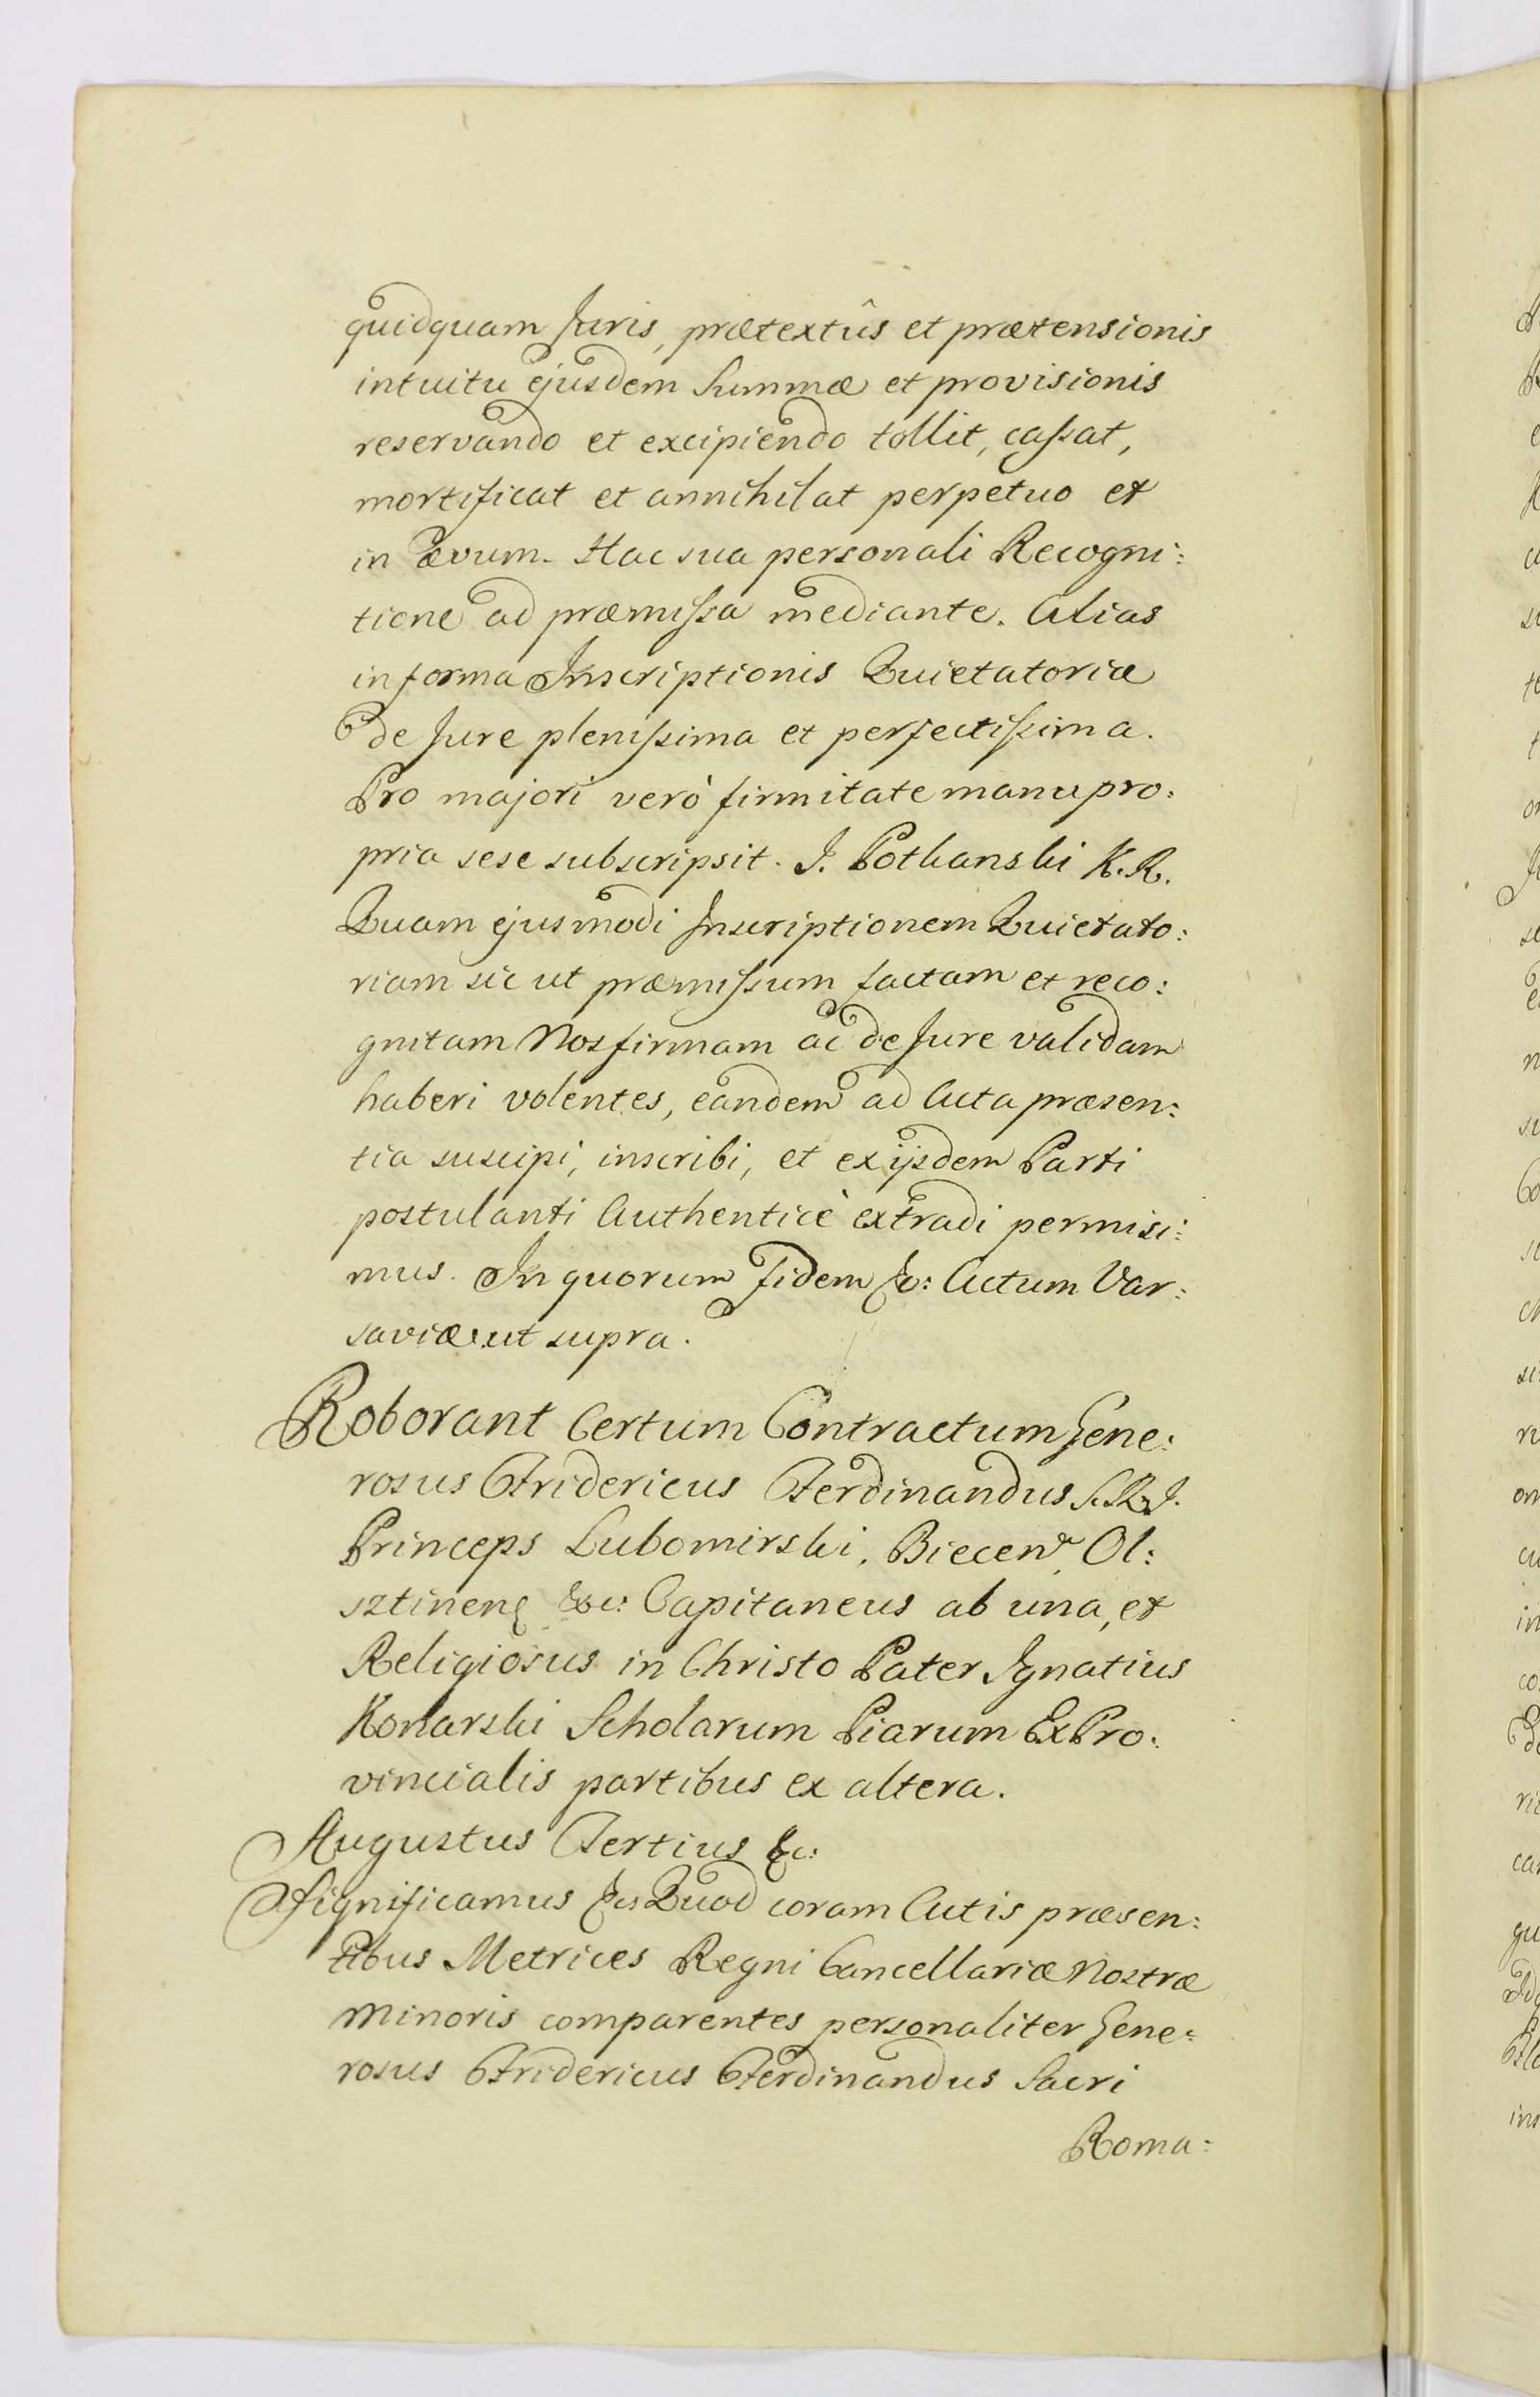 quidquam Juris, prætextûs et prætensionis
intuitu ejusdem Summæ et provisionis
reservando et excipiendo tollit, cassat,
mortificat et annihilat perpetuo et
in ævum. Hac sua personali Recogni:
tione ad præmissa mediante. Alias
in forma Inscriptionis Quietatoriæ
de Jure plenissima et perfectissima.
Pro majori verò firmitate manu pro:
pria sese subscripsit. J. Pothanski K. R.
Quam ejusmodi Inscriptionem Quietato:
riam sic ut præmissum factam et reco:
gnitam Nos firmam ac de Jure validam
haberi volentes, eandem ad Acta præsen:
tia suscipi, inscribi, et ex ijsdem Parti
postulanti Authenticè extradi permisi:
mus. In quorum fidem &c: Actum Var:
saviæ ut supra.
Roborant Certum Contractum Gene:
rosus Fridericus Ferdinandus S. R. J.
Princeps Lubomirski, Biecen, Ol:
sztinen &c: Capitaneus ab una, et
Religiosus in Christo Pater Ignatius
Konarski Scholarum Piarum ExPro:
vincialis partibus ex altera.
Augustus Tertius &c:
Significamus &c Quod coram Actis præsen:
tibus Metrices Regni Cancellariæ Nostræ
Minoris comparentes personaliter Gene:
rosus Fridericus Ferdinandus Sacri
Roma: